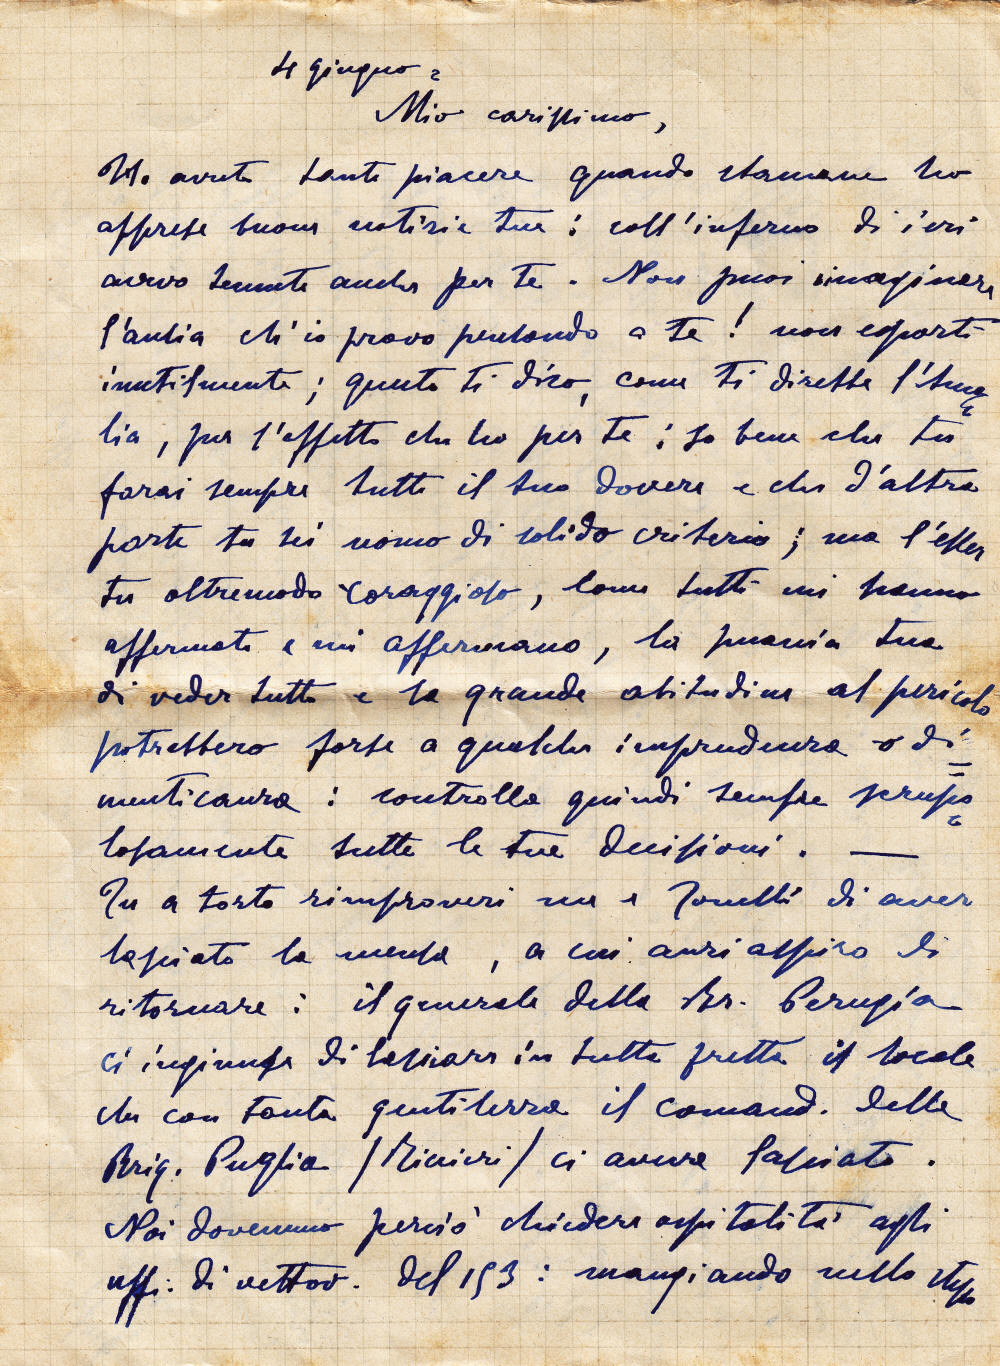 4 giugno =
Mio carissimo,
Ho avuto tanto piacere quando stamane ho
apprese buone notizie tue: coll'inferno di ieri
avevo temuto anche per te. Non puoi imaginare
l'ansia ch'io provo pensando a te! non esporti
inutilmente; questo ti dico, come ti direbbe l'Ama=
lia, per l'affetto che ho per te; so bene che tu
farai sempre tutto il tuo dovere e che d'altra
parte tu sei uomo di solido criterio; ma l'esser
tu oltremodo coraggioso, come tutti mi hanno
affermato e mi affermano, la smania tua
di veder tutto e la grande abitudine al pericolo
potrebbero forse a qualche imprudenza o di=
menticanza: controlla quindi sempre scrupo=
losamente tutte le tue decisioni. —
Tu a torto rimproveri me e Tonelli di aver
lasciato la mensa, a cui anzi aspiro di
ritornare: il generale della Br. Perugia
ci ingiunse di lasciare in tutta fretta il locale
che con tanta gentilezza il comand. della
Brig. Puglia / / ci aveva lasciato.
Noi dovemmo perciò chiedere ospitalità agli
uffi. di vettov. del 153: mangiando nello stesso